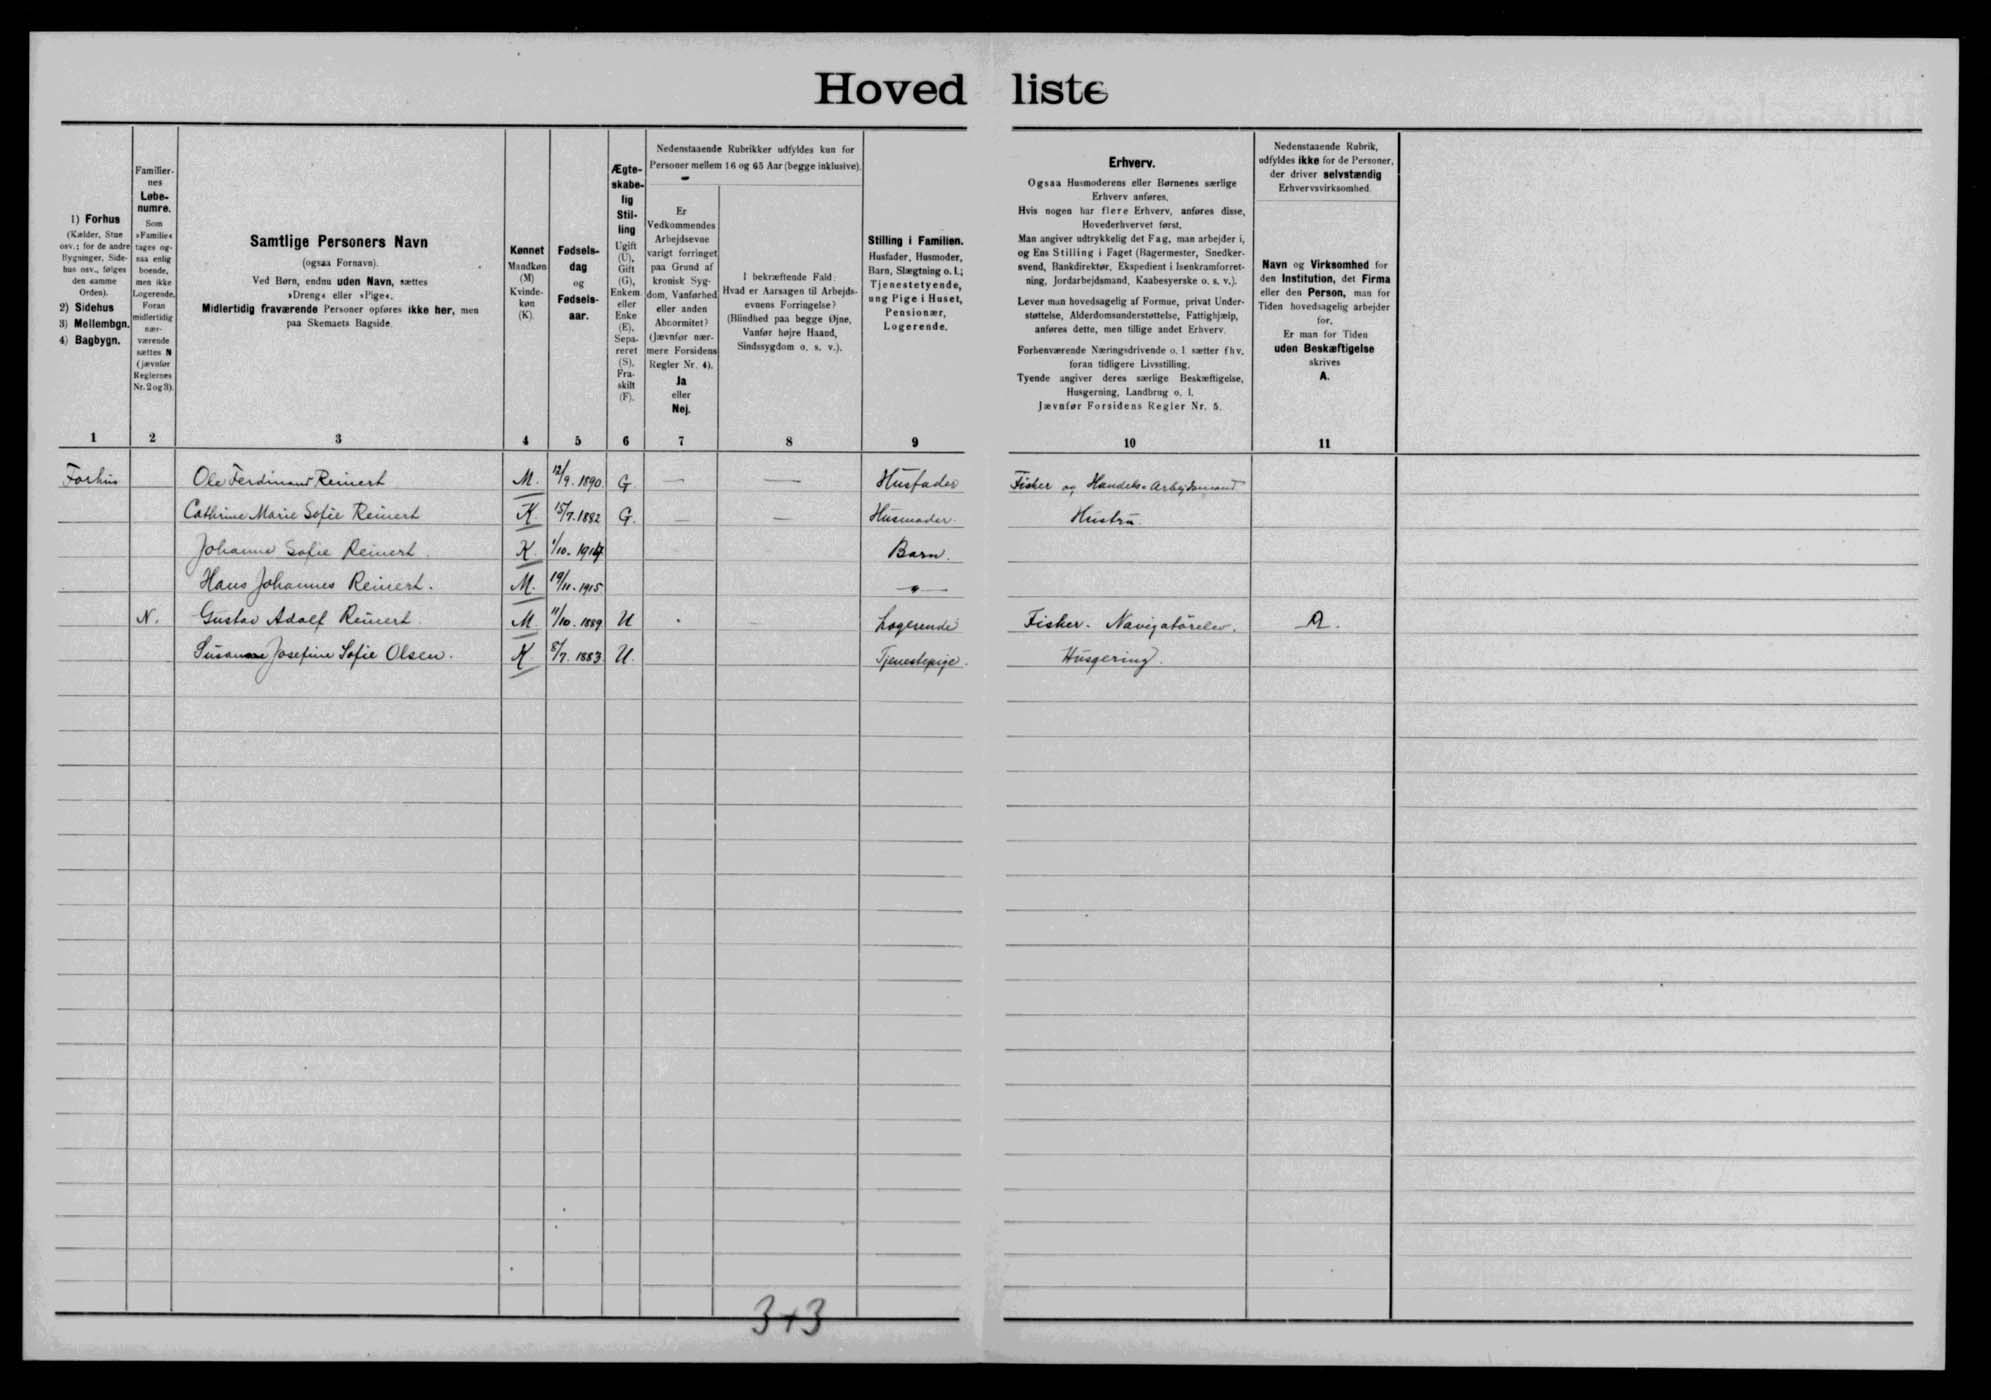 Hoved liste
1) Forhus
(Kælder, Stue
osv.; for de andre
Bygninger, Side-
hus osv., følges
den samme
Orden).
2) Sidehus
3) Mellembgn.
4) Bagbygn.
Familier-
nes
Løbe-
numre.
Som
»Familie«
tages og-
saa enlig
boende,
men ikke
Logerende.
Foran
midlertidig
nær-
værende
sættes N
(jævnfør
Reglernes
Nr. 2 og 3).
Samtlige Personers Navn
(ogsaa Fornavn).
Ved Børn, endnu uden Navn, sættes
»Dreng« eller »Pige«.
Midlertidig fraværende Personer opføres ikke her, men
paa Skemaets Bagside.
Kønnet
Mandkøn
(M)
Kvinde-
køn
(K).
Fødsels-
dag
og
Fødsels-
aar.
Ægte-
skabe-
lig
Stil-
ling
Ugift
(U),
Gift
(G),
Enkem.
eller
Enke
(E),
Sepa-
reret
(S),
Fra-
skilt
(F).
Nedenstaaende Rubrikker udfyldes kun for
Personer mellem 16 og 65 Aar (begge inklusive).
Er
Vedkommendes
Arbejdsevne
varigt forringet
paa Grund af
kronisk Syg-
dom, Vanførhed
eller anden
Abnormitet?
(Jævnfør nær-
mere Forsidens
Regler Nr. 4).
Ja
eller
Nej.
I bekræftende Fald:
Hvad er Aarsagen til Arbejds-
evnens Forringelse?
(Blindhed paa begge Øjne,
Vanfør højre Haand,
Sindssygdom o. s. v.).
Stilling i Familien.
Husfader, Husmoder,
Barn, Slægtning o. l.;
Tjenestetyende,
ung Pige i Huset,
Pensionær,
Logerende.
Erhverv.
Ogsaa Husmoderens eller Børnenes særlige
Erhverv anføres.
Hvis nogen har flere Erhverv, anføres disse,
Hovederhvervet først.
Man angiver udtrykkelig det Fag, man arbejder i,
og Ens Stilling i Faget (Bagermester, Snedker-
svend, Bankdirektør, Ekspedient i Isenkramforret-
ning, Jordarbejdsmand, Kaabesyerske o. s. v.).
Lever man hovedsagelig af Formue, privat Under-
støttelse, Alderdomsunderstøttelse, Fattighjælp,
anføres dette, men tillige andet Erhverv.
Forhenværende Næringsdrivende o. l. sætter fhv.
foran tidligere Livsstilling.
Tyende angiver deres særlige Beskæftigelse,
Husgerning, Landbrug o. l.
Jævnfør Forsidens Regler Nr. 5.
Nedenstaaende Rubrik,
udfyldes ikke for de Personer,
der driver selvstændig
Erhvervsvirksomhed.
Navn og Virksomhed for
den Institution, det Firma
eller den Person, man for
Tiden hovedsagelig arbejder
for.
Er man for Tiden
uden Beskæftigelse
skrives
A.
1 2 3 4 5 6 7 8 9 10 11
Forhus Ole Ferdinand Reinert M. 12/9. 1890. G. — — Husfader Fisker og Handels-Arbejdsmand
Cathrine Marie Sofie Reinert K. 15/7. 1882 G. — — Husmoder. Hustru
Johanne Sofie Reinert. K. 1/10. 1914 Barn.
Hans Johannes Reinert. M. 19/11. 1915 — " —
N. Gustav Adolf Reinert M. 11/10. 1889 U Logerende Fisker. Navigatörelev. A.
Susanne Josefine Sofie Olsen. K 8/7. 1883 U. Tjenestepige. Husgering.
3+3